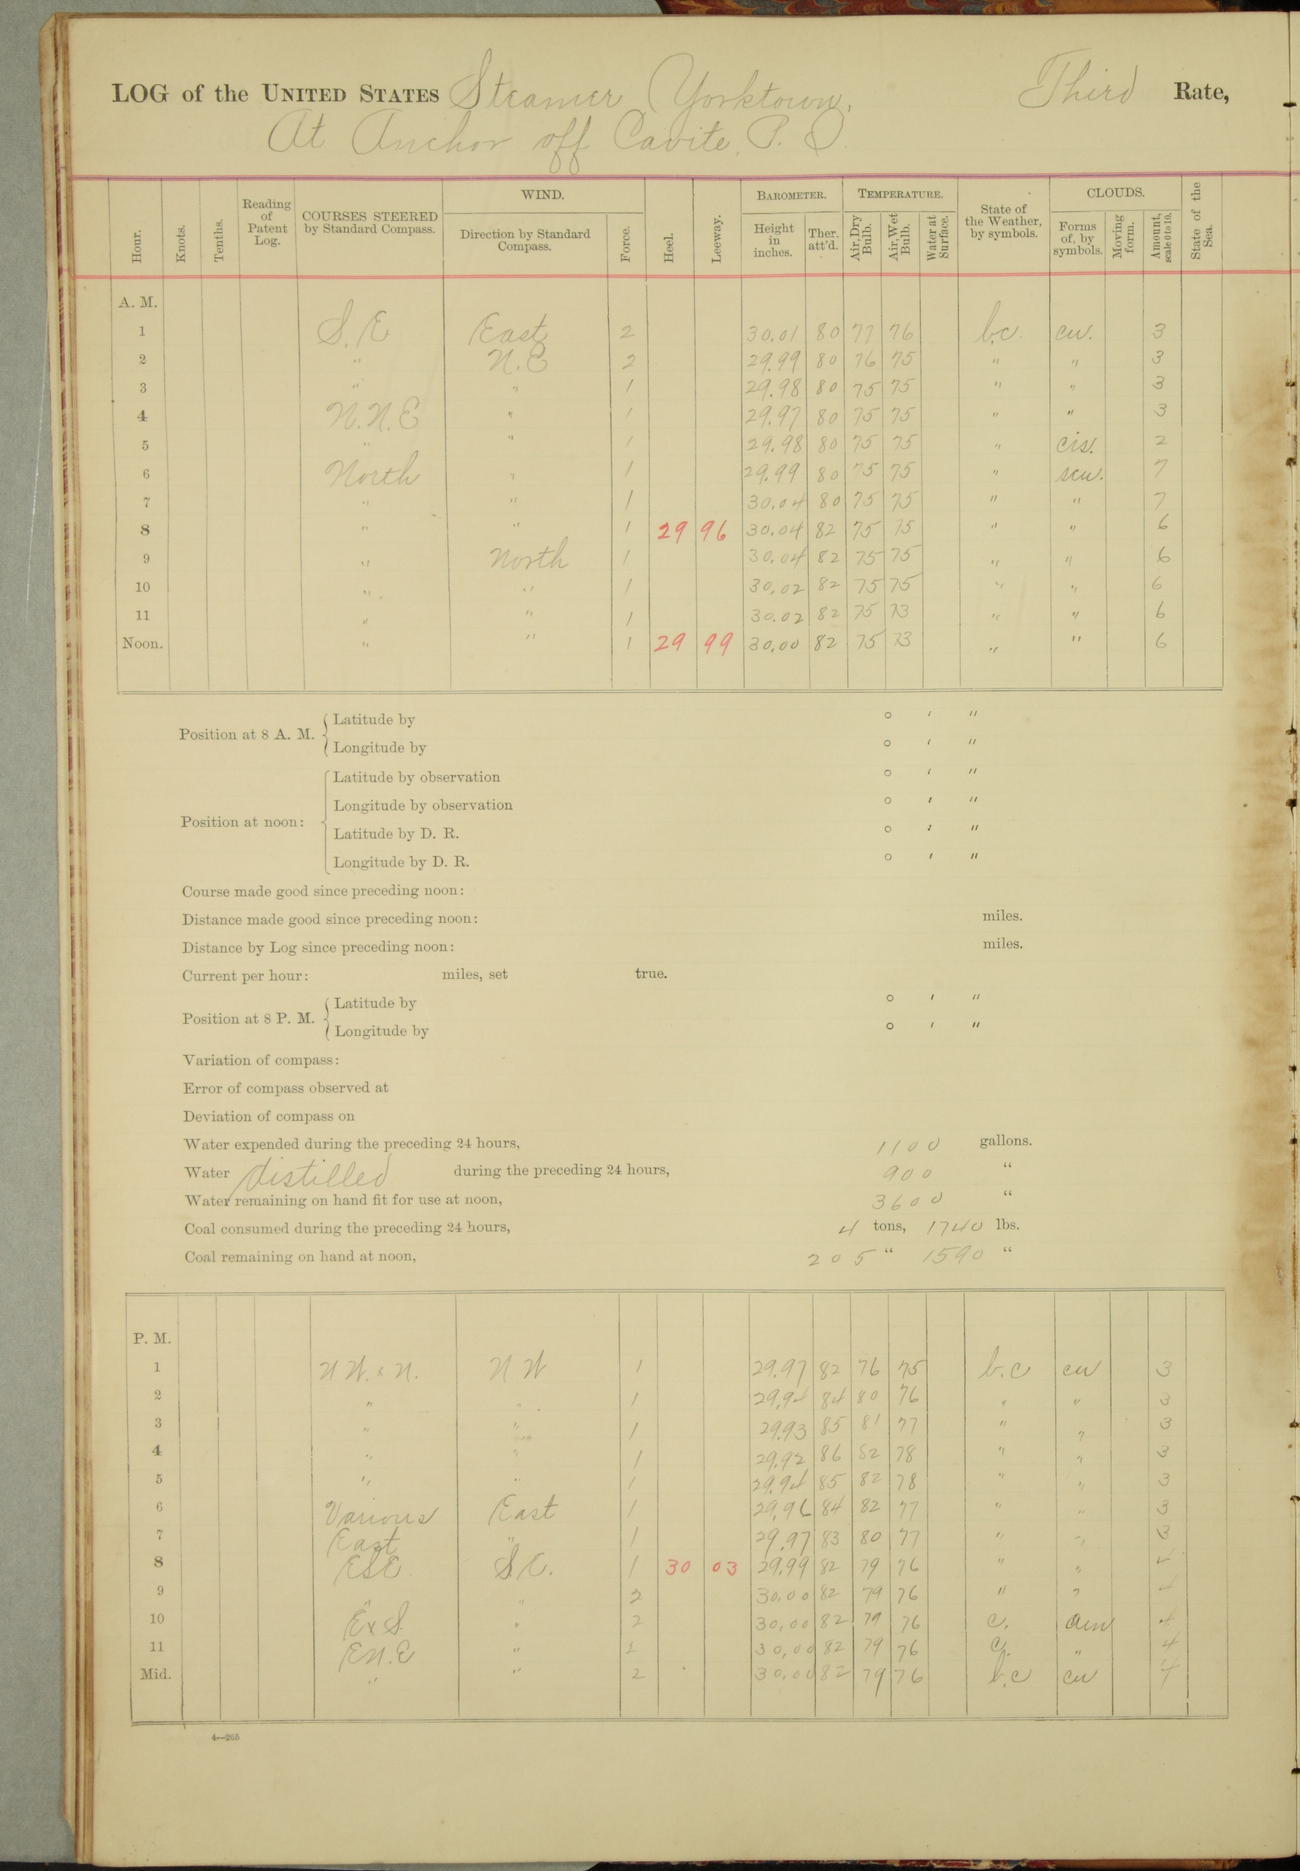 LOG of the UNITED STATES Steamer Yorktown, Third Rate,
At Anchor off Cavite, P. I.
Hour. Knots. Tenths. Reading of Patent Log. COURSES STEERED by Standard Compass. WIND. Direction by Standard Compass. Force. Heel. Leeway. BAROMETER. Height in inches. Ther. att'd. TEMPERATURE. Air, Dry Bulb. Air, Wet Bulb. Water at Surface. State of the Weather, by symbols. CLOUDS. Forms of, by symbols. Moving form. Amount, scale 0 to 10. State of the Sea.
A. M.
1 S. E East 2 30.01 80 77 76 b.c. cu. 3
2 " N. E 2 29.99 80 76 75 " " 3
3 " " 1 29.98 80 75 75 " " 3
4 N. N. E " 1 29.97 80 75 75 " " 3
5 " " 1 29.98 80 75 75 " cis. 2
6 North " 1 29.99 80 75 75 " scu. 7
7 " " 1 30.04 80 75 75 " " 7
8 " " 1 29 96 30.04 82 75 75 " " 6
9 " North 1 30.04 82 75 75 " " 6
10 " " 1 30.02 82 75 75 " " 6
11 " " 1 30.02 82 75 73 " " 6
Noon. " " 1 29 99 30.00 82 75 73 " " 6
Position at 8 A. M. Latitude by ° ′ ″
Longitude by ° ′ ″
Position at noon: Latitude by observation ° ′ ″
Longitude by observation ° ′ ″
Latitude by D. R. ° ′ ″
Longitude by D. R. ° ′ ″
Course made good since preceding noon:
Distance made good since preceding noon: miles.
Distance by Log since preceding noon: miles.
Current per hour: miles, set true.
Position at 8 P. M. Latitude by ° ′ ″
Longitude by ° ′ ″
Variation of compass:
Error of compass observed at
Deviation of compass on
Water expended during the preceding 24 hours, 1100 gallons.
Water distilled during the preceding 24 hours, 900 "
Water remaining on hand fit for use at noon, 3600 "
Coal consumed during the preceding 24 hours, 4 tons, 1740 lbs.
Coal remaining on hand at noon, 205 " 1590 "
P. M.
1 N W. x N. N W 1 29.97 82 76 75 b.c cu 3
2 " " 1 29.94 84 80 76 " " 3
3 " " 1 29.93 85 81 77 " " 3
4 " " 1 29.92 86 82 78 " " 3
5 " " 1 29.94 85 82 78 " " 3
6 Various East 1 29.96 84 82 77 " " 3
7 East " 1 29.97 83 80 77 " " 3
8 ESE S. E. 1 30 03 29.99 82 79 76 " "
9 " " 2 30.00 82 79 76 " "
10 E x S " 2 30.00 82 79 76 c. 4
11 E N. E " 30.00 82 79 76 c. " 4
Mid. " " 2 30.00 82 79 76 b.c cu 4
4—265